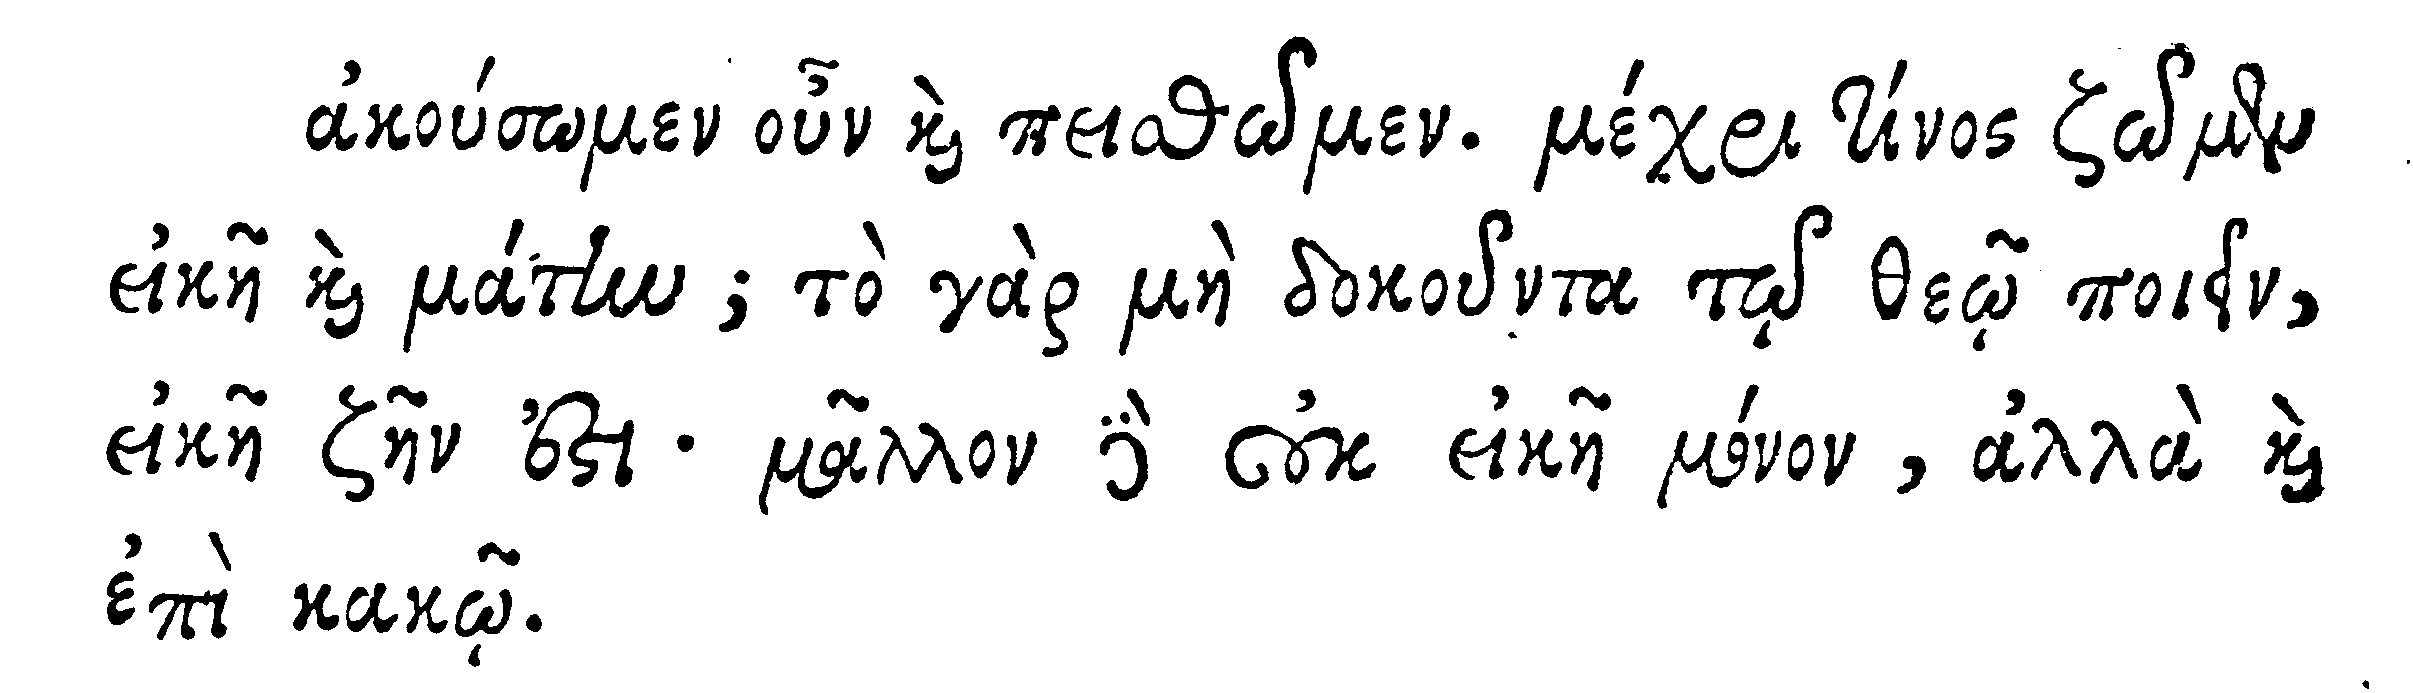 ἀκούσωμεν οὖν καὶ πειθῶμεν. μέχρι τίνος ζῶμεν
εἰκῆ καὶ μάτην; τὸ γὰρ μὴ δοκοῦντα τῷ θεῷ ποιεῖν,
εἰκῆ ζῆν ἐστι· μᾶλλον δὲ οὐκ εἰκῆ μόνον, ἀλλὰ καὶ
ἐπὶ κακῷ.